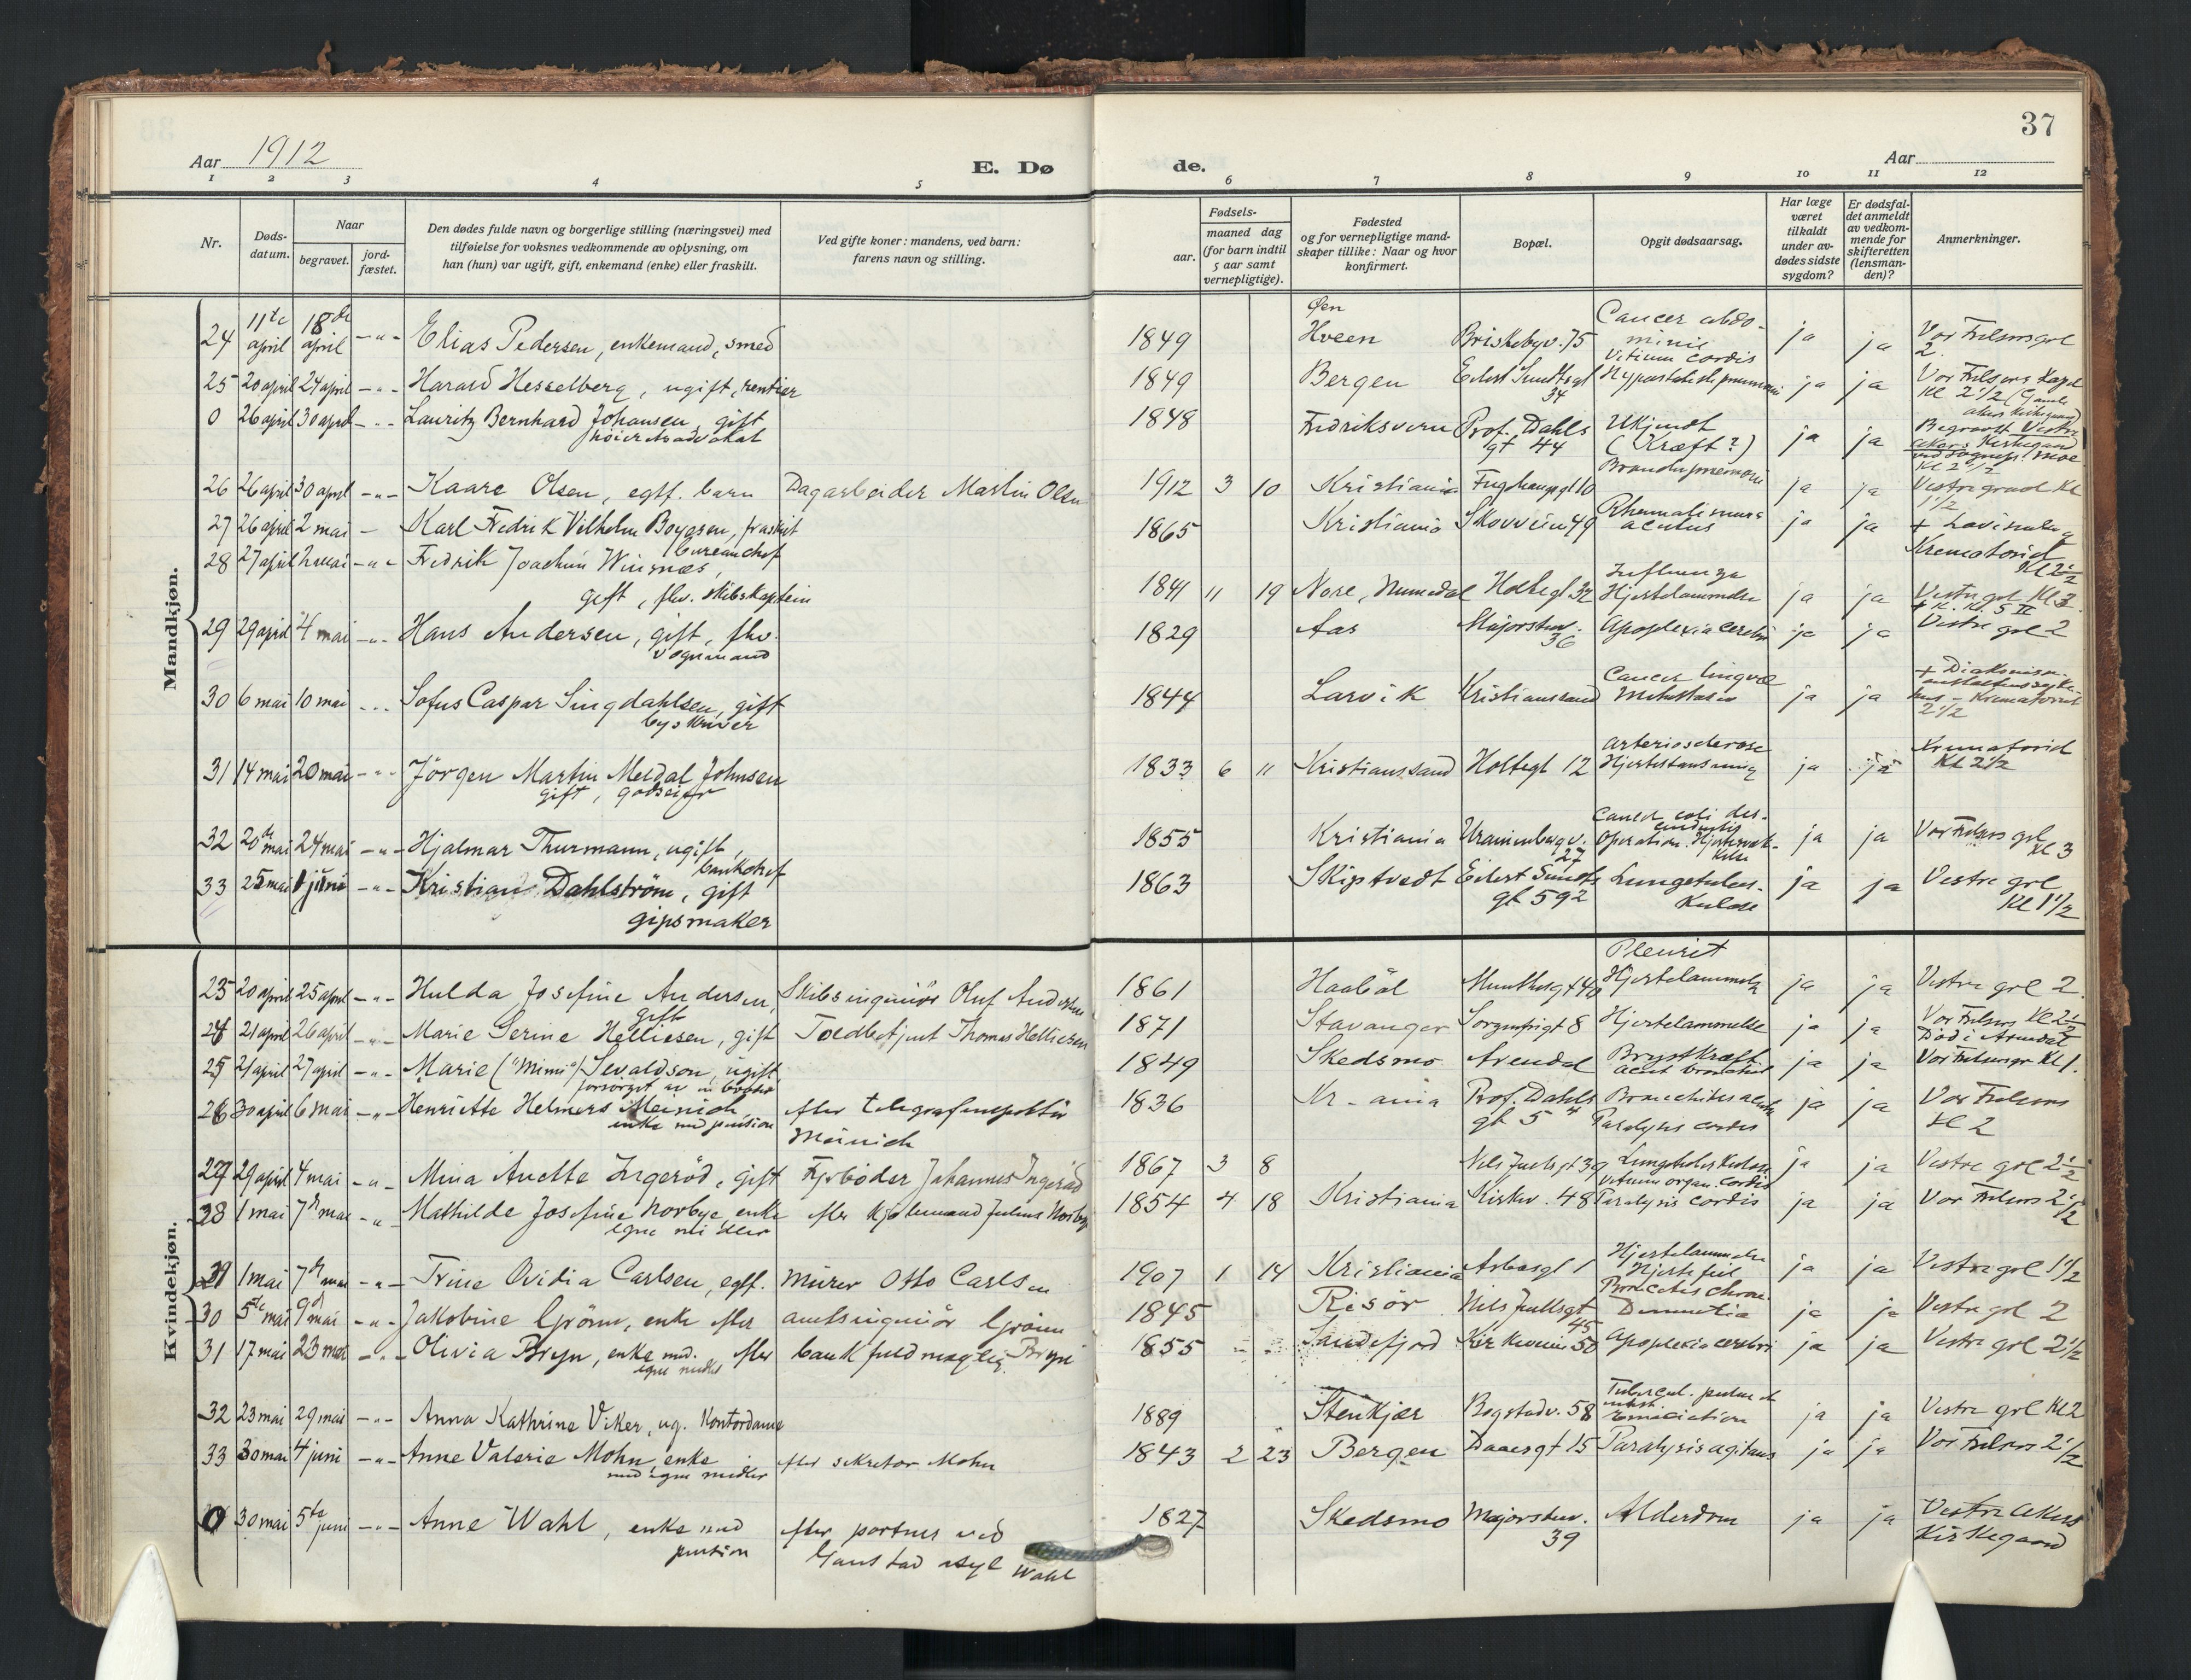 37
Aar 1912
E. Dø de.
Aar
1 2 3 4 5 6 7 8 9 10 11 12
Nr.
Døds-datum.
Naar
begravet.
jord-fæstet.
Den dødes fulde navn og borgerlige stilling (næringsvei) med
tilføielse for voksnes vedkommende av oplysning, om
han (hun) var ugift, gift, enkemand (enke) eller fraskilt.
Ved gifte koner: mandens, ved barn:
farens navn og stilling.
Fødsels-
aar.
maaned dag
(for barn indtil
5 aar samt
vernepligtige).
Fødested
og for vernepligtige mand-
skaper tillike: Naar og hvor
konfirmert.
Bopæl.
Opgit dødsaarsag.
Har læge
været
tilkaldt
under av-
dødes sidste
sygdom?
Er dødsfal-
det anmeldt
av vedkom-
mende for
skifteretten
(lensman-
den)?
Anmerkninger.
Mandkjøn.
24 11te april 18de april -"- Elias Pedersen, enkemand, smed 1849 Øen Hveen Briskebyv. 75 Cancer abdominis Vitium cordis ja ja Vor Frelsers grl 2.
25 20 april 24 april -"- Harald Hesselberg, ugift, rentier 1849 Bergen Eilert Sundtsgt 34 ja ja Vor Frelsers Kapel Kl 2 1/2 (Gamle Akers Kirkegaard)
0 26 april 30 april -"- Lauritz Bernhard Johansen, gift høiesteradvokat 1848 Fredriksvern Prof. Dahls gt 44 Ukjendt (Kræft?) ja ja Begravet Vestre Akers Kirkegaard ved sognepr. Moe Kl 2 1/2
26 26 april 30 april -"- Kaare Olsen, egtf. barn Dagarbeider Martin Olsen 1912 3 10 Kristiania ja ja Vestre gravl Kl 1 1/2
27 26 april 2 mai - Karl Fredrik Vilhelm Boysen, fraskilt bureauchef 1865 Kristiania Skovveien 49 Rheumatismus acutus ja ja
28 27 april 2 mai -"- Fredrik Joachim gift, fhv. skibskaptein 1841 11 19 Nore, Numedal Holtegt 32 Influenza Hjertelammelse ja ja Vestre grl Kl 3.
29 29 april 4 mai -"- Hans Andersen, gift, fhv. vognmand 1829 Aas Majorstuv. 36 Apoplexia cerebri ja ja Vestre grl 2
30 6 mai 10 mai -"- Sofus Caspar Singdahlsen, gift byskriver 1844 Larvik Kristianssand Cancer lingvæ Metastaser ja ja Krematoriet 2 1/2
31 14 mai 20 mai -"- Jörgen Martin Meidal Johnsen gift, godseier 1833 6 11 Kristianssand Holtegt 12 Arteriosclerose ja ja Krematoriet Kl 2 1/2
32 20de mai 24 mai -"- Hjalmar Thurmann, ugift, bankchef 1855 Kristiania Uranienborgv. 27 Cancer coli Operation. ja ja Vor Frelsers grl kl 3
33 25 mai 1 juni -"- Kristian Dahlström, gift gipsmaker 1863 Skiptvedt Eilert Sundts gt 59 2 Lungetuberkulose ja ja Vestre grl Kl 1 1/2
Kvindekjøn.
23 20 april 25 april -"- Hulda Josefine Andersen, gift Skibsingeniör Oluf Andersen 1861 Haaböl Munthesgt 40 Pleurit Hjertelammelse ja ja Vestre grl 2.
24 21 april 26 april -"- Marie Serine Helliesen, gift Toldbetjent Thomas Helliesen 1871 Stavanger Sorgenfrigt 8 Hjertelammelse ja ja Vor Frelsers Kl 2 1/2 Död i Arendal
25 21 april 27 april -"- Marie ("Mimi") Sevaldson, ugift forsörget av en broder 1849 Skedsmo Arendal Brystkræft Acut bronchit ja ja Vor Frelsersgr Kl 1.
26 30 april 6 mai -"- Henriette Helmers Meinich, enke med pension efter telegrafinspektör Meinich 1836 Kr-ania Prof. Dahls gt 5 Bronchitis acuta Paralysis cordis ja ja Vor Frelsers Kl 2
27 29 april 4 mai -"- Mina Anette Ingeröd, gift Fyrböder Johannes Ingeröd 1867 3 8 Nils Juels gt 39 Lungetuberkulose ja ja Vestre grl 2 1/2
28 1 mai 7de mai -"- Mathilde Josefine Norbye enke egne midler efter Kjøbmand Julius Norbye 1854 4 18 Kristiania Kirkev. 48 Vitium organ. cordis Paralysis cordis ja ja Vor Frelsers 2 1/2
29 1 mai 7de mai -"- Trine Ovidia Carlsen, egtf. Murer Otto Carlsen 1907 1 14 Kristiania Asbøsgt 1 Hjertelammelse Hjertefeil ja ja Vestre grl 1 1/2
30 5te mai 9de mai -"- Jakobine Grönn, enke efter amtsingeniör Grönn 1845 Risör Nils Juelsgt 45 Bronchitis chron. Dementia ja ja Vestre grl 2
31 17 mai 23 mai -"- Olivia Bryn, enke med egne midler efter bankfuldmægtig Bryn 1855 Sandefjord Kirkeveien 50 Apoplexia cerebri ja ja Vestre grl 2 1/2
32 23 mai 29 mai -"- Anna Kathrine Viker, ug. Kontordame 1889 Stenkjær Bogstadv. 58 Tubercul. pulm. et intest. Emaciation ja ja Vestre grl Kl 2
33 30 mai 4 juni -"- Anne Valerie Mohn, enke med egne midler efter sekretær Mohn 1843 2 23 Bergen Daaesgt 15 Paralysis agitans ja ja Vor Frelsers 2 1/2
0 30 mai 5te juni -"- Anne Wahl, enke med pension efter portner ved Gaustad asyl Wahl 1827 Skedsmo Majorstuv. 39 Alderdom ja ja Vestre Akers Kirkegaard